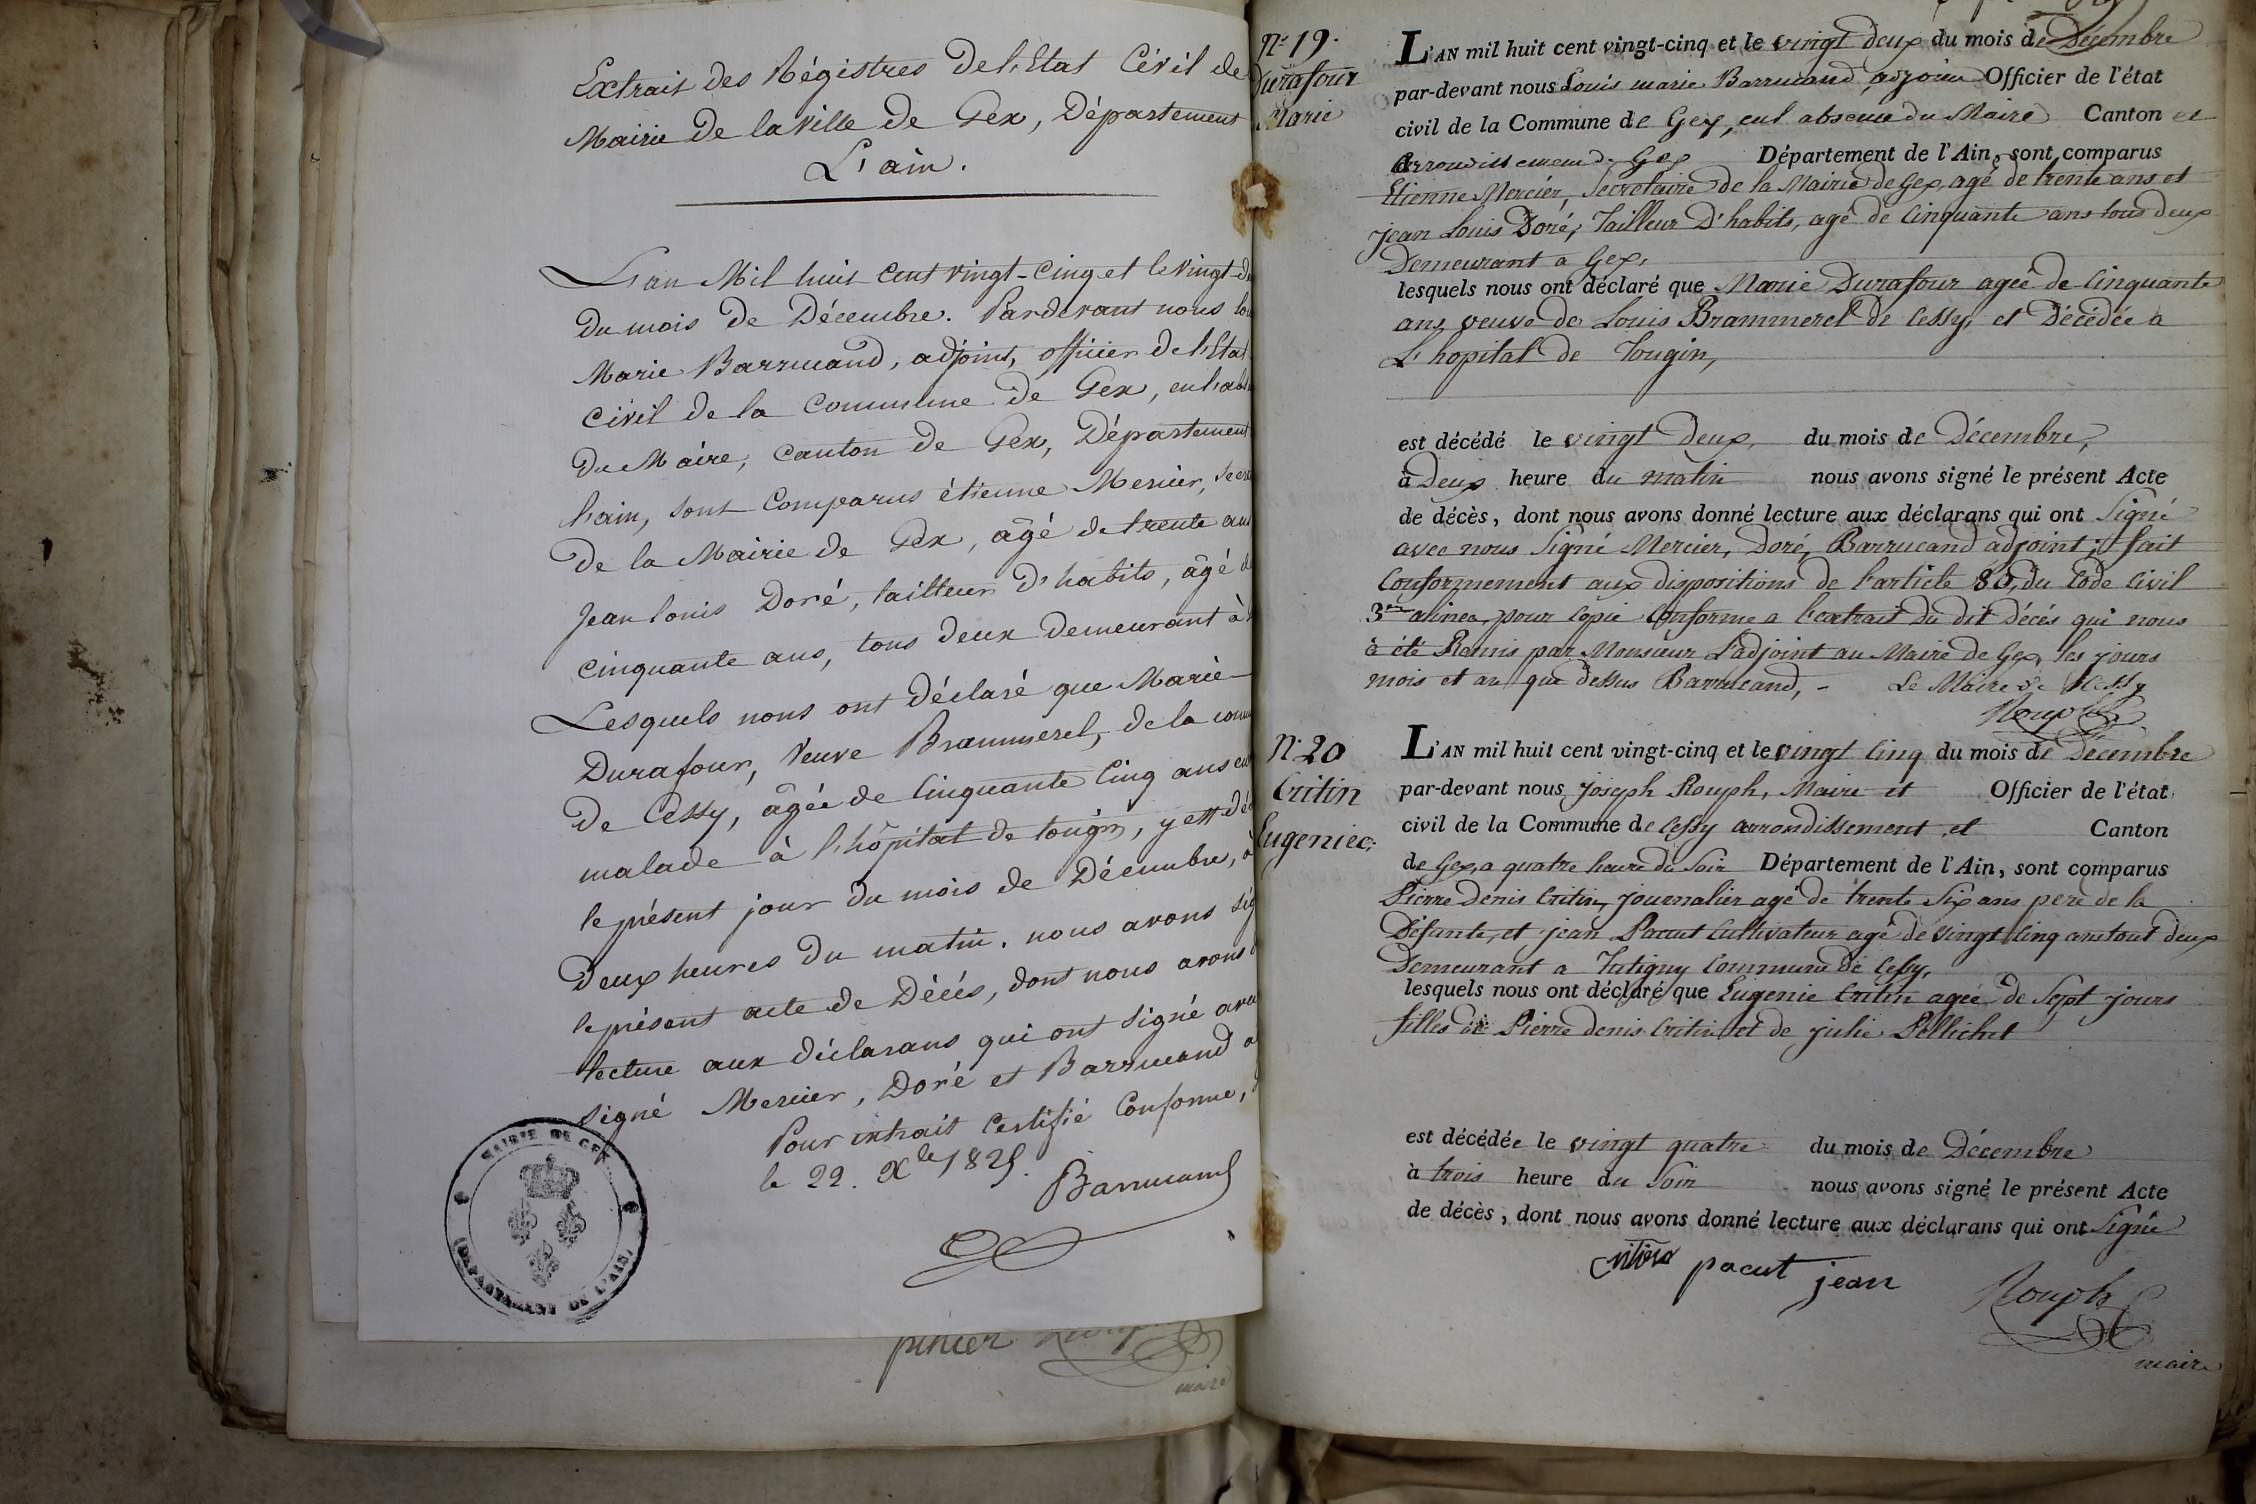 Extrait des Régistres de l'Etat Civil de
Mairie de la ville de Gex, Département
L'ain.
L'an Mil huit cent vingt-cinq et le vingt-d
du mois de Décembre. Pardevant nous lou
Marie Barrucand, adjoint, officier de l'Etat
civil de la commune de Gex, en l'abs
du Maire, canton de Gex, Département
l'ain, sont comparus étienne Mercier, Secre
de la Mairie de Gex, âgé de trente ans
Jean louis Doré, tailleur d'habits, âgé d
cinquante ans, tous deux demeurant à
Lesquels nous ont déclaré que Marie
Durafour, Veuve Brammerel, de la comm
de Cessy, âgée de cinquante cinq ans en
malade à l'hôpital de tougin, y est dé
le présent jour du mois de Décembre, à
deux heures du matin. nous avons sig
le présent acte de Décés, dont nous avons
lecture aux déclarans qui ont signé ave
signé Mercier, Doré et Barrucand a
Pour extrait certifié conforme,
le 22. Xbre 1825.
Barrucand
MAIRIE DE GEX
(DÉPARTEMENT DE L'AIN)
pinier
maire
N° 19.
Durafour
Marie
L'AN mil huit cent vingt-cinq et le vingt deux du mois de Décembre
par-devant nous Louis marie Barrucand, adjoint Officier de l'état
civil de la Commune de Gex, en l absence du Maire Canton et
arrondissement de Gex Département de l'Ain, sont comparus
Etienne Mercier, Secretaire de la Mairie de Gex, agé de trente ans et
jean Louis Doré, Tailleur d'habits, agé de Cinquante ans tous deux
Demeurant a Gex,
lesquels nous ont déclaré que Marie Durafour agée de Cinquante
ans veuve de Louis Brammerel de Cessy, et Décédée a
L'hopital de Tougin,
est décédé le vingt deux, du mois de Décembre,
à deux heure du matin nous avons signé le présent Acte
de décès, dont nous avons donné lecture aux déclarans qui ont Signé
avec nous Signé Mercier, Doré, Barrucand adjoint; fait
Conformement aux dispositions de l'article 80, du Code Civil
3me alinea, pour copie Conforme a l'extrait du dit décés qui nous
à été Remis par Monsieur L'adjoint au Maire de Gex, les jours
mois et an que dessus Barrucand, - Le Maire de Cessy
Rouph
N° 20
Critin
Eugenie
L'AN mil huit cent vingt-cinq et le vingt Cinq du mois de Décembre
par-devant nous Joseph Rouph, Maire et Officier de l'état
civil de la Commune de Cessy arrondissement et Canton
de Gex, a quatre heure du Soir Département de l'Ain, sont comparus
Pierre denis Critin, journalier agé de trente Six ans pere de la
Défunte, et jean Pacut Cultivateur agé de vingt Cinq ans tout deux
Demeurant a Tutigny Commune de Cessy,
lesquels nous ont déclaré que Eugenie Critin agée de Sept jours
filles de Pierre denis Critin et de julie Pellichet
est décédée le vingt quatre du mois de Décembre
à trois heure du Soir nous avons signé le présent Acte
de décès, dont nous avons donné lecture aux déclarans qui ont Signé
pacut jean
Rouph
maire